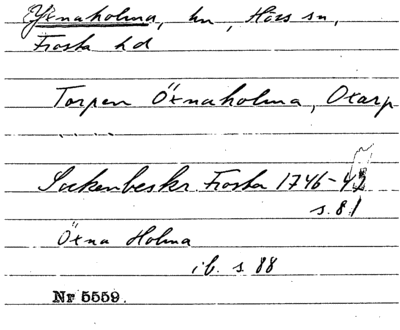 Öxnaholma, hn, Hörs sn,
Frosta hd
Torpen Öxnaholma, Oxarp
Sockenbeskr. Frosta 1746-42
s. 81
Öxna Holma
ib. s 88
Nr 5559.